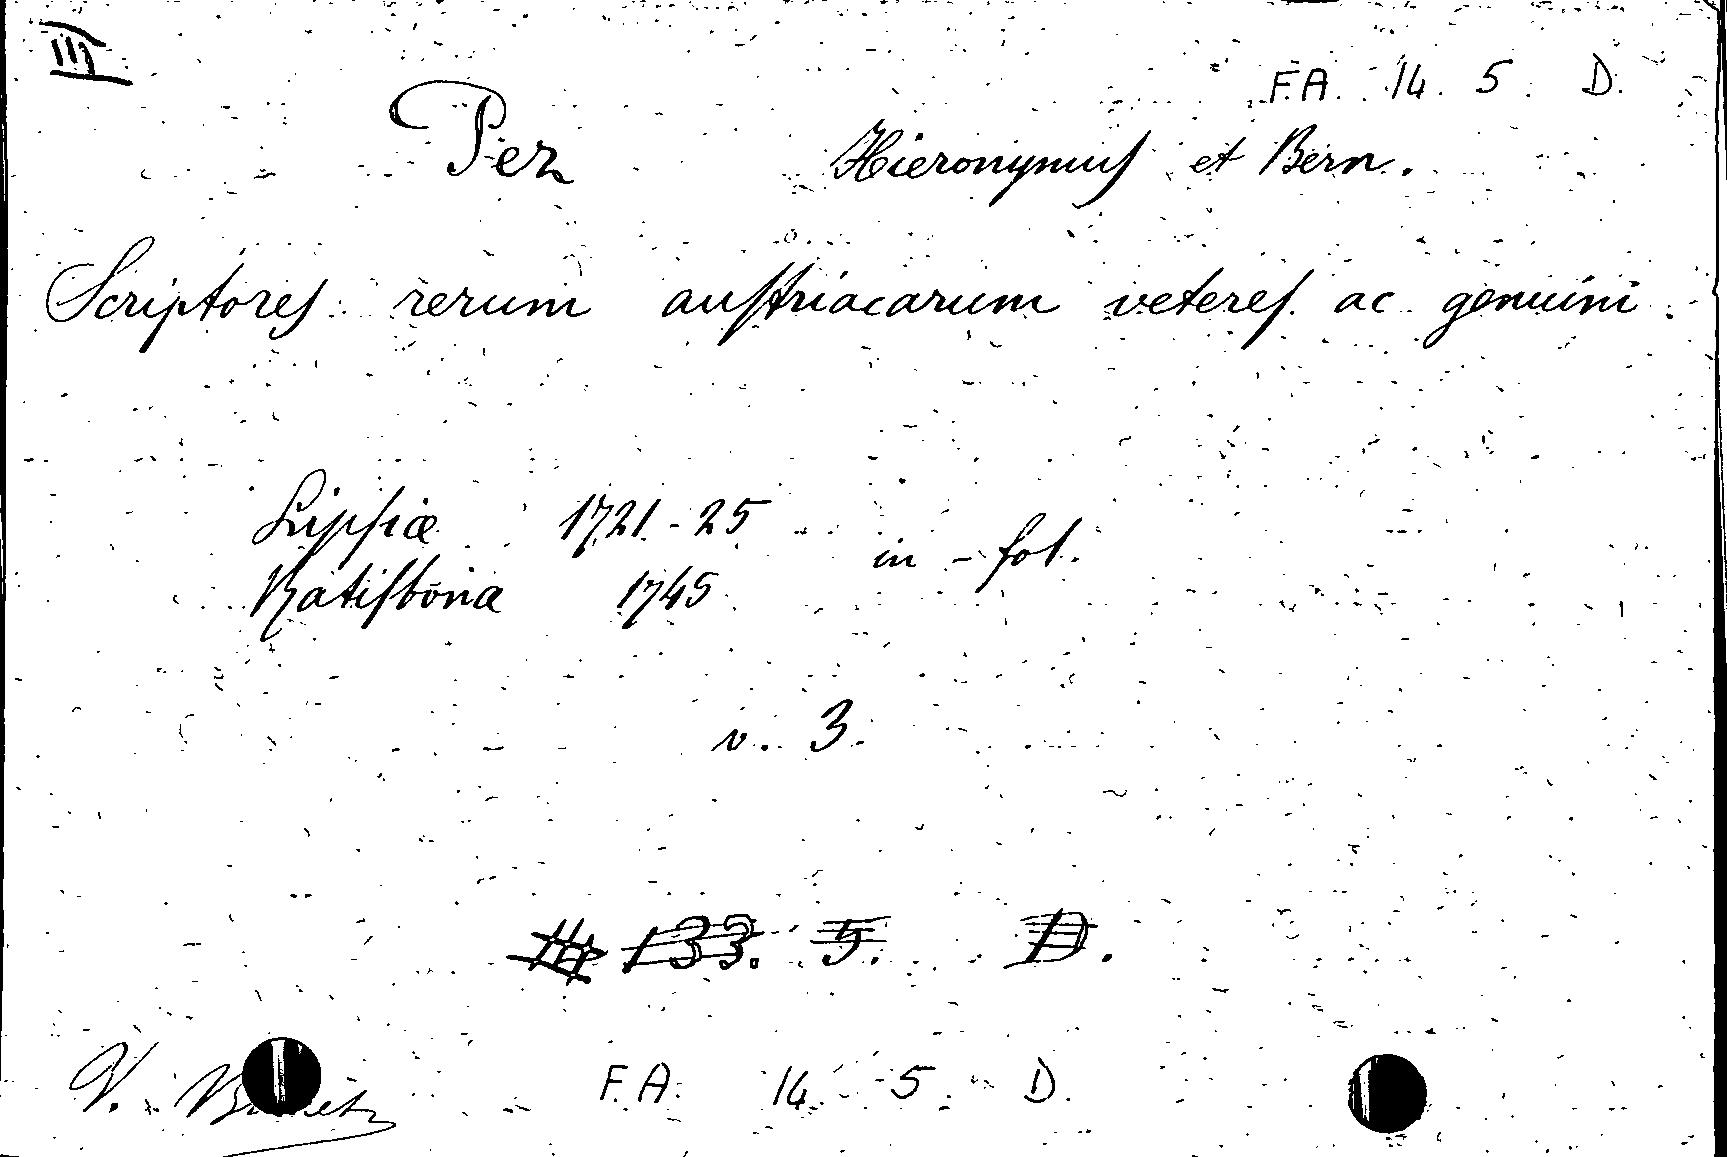 III
F.A. 14. 5. D.
Pez Hieronymus et Bern.
Scriptores rerum austriacarum veteres ac genuini.
Lipsiæ 1721-25
in-fol.
Ratisbonæ 1745
v. 3.
133. 5. D.
V.
F.A. 14. 5. D.